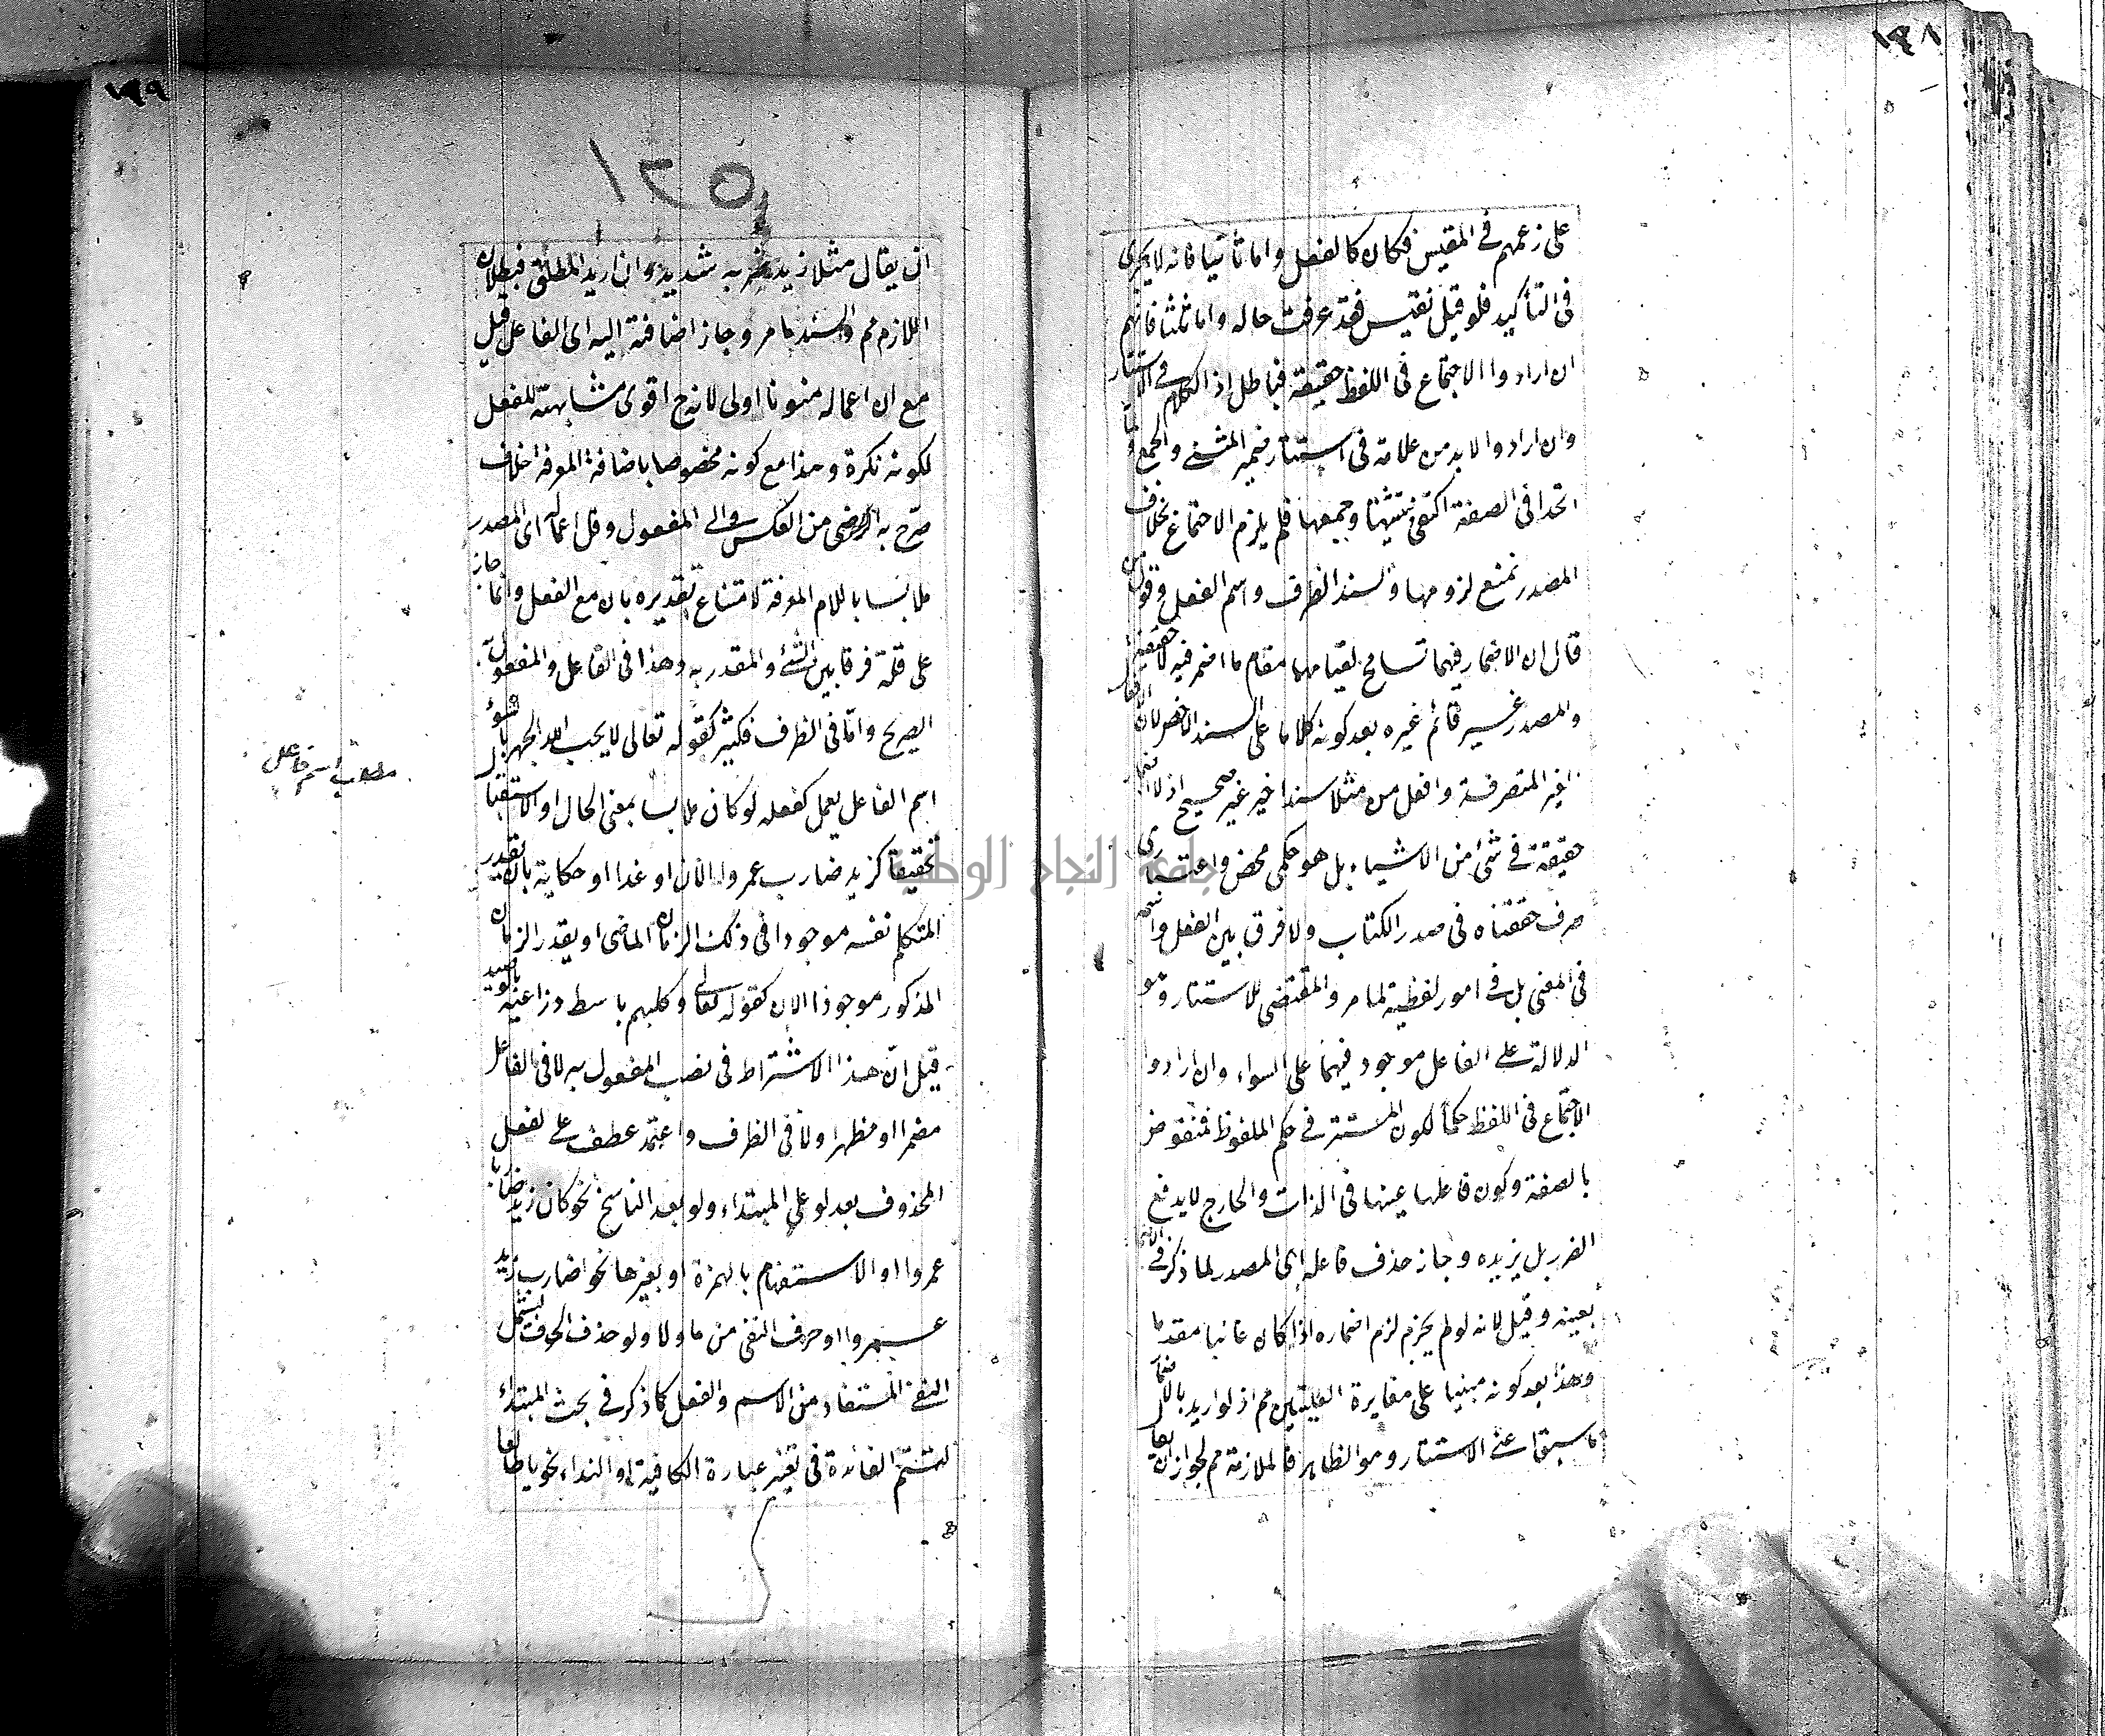 ١٩٨
على زعمهم في المقيس فكان كالفعل واما ثانيا فانه لا يجرى
في التأكيد فلو قيل نقيس فقد عرفت حاله واما ثالثا فانهم
ان ارادوا الاجتماع في اللفظ حقيقة فباطل اذ الكلام في الاستتار
وان ارادوا لابد من علامة في استتار ضمير المثنى والجمع
اتحدا في الصفة اكتفى بتثنيتها وجمعها فلم يلزم الاجتماع بخلاف
المصدر نمنع لزومها والسند الظرف واسم الفعل وقول من
قال ان الاضمار فيهما تسامح لقيامهما مقام ما اضمر فيه لا حقيقة
والمصدر غير قائم غيره بعد كونه كلاما على السند الاخص لان
الغير المتصرفة وافعل من مثلا سندا خير غير صحيح اذ لا اضمار
حقيقة في شئ من الاشياء بل هو حكمي محض واعتبارى
صرف حققناه في صدر الكتاب ولا فرق بين الفعل واسمه
في المعنى بل في امور لفظية لما مر والمقتضى للاستتار وهو
الدلالة على الفاعل موجود فيهما على السواء وان ارادوا
الاجتماع في اللفظ حكما لكون المستتر في حكم الملفوظ فمنقوض
بالصفة وكون فاعلها عينها في الذات والخارج لا يدفع
الضرر بل يزيده وجاز حذف فاعله اى المصدر لما ذكر في
بعينه وقيل لانه لو لم يجز لزم اضماره اذا كان غائبا مقدما
وهذا بعد كونه مبنيا على مغايرة العلتين مم اذ لو اريد بالاضمار
ما سبق اعنى الاستتار وهو الظاهر فالملازمة مم لجواز
١٩٩
١٢٥
ان يقال مثلا زيد ضربه شديد وان اريد المطلق فبطلان
اللازم مم والسند ما مر وجاز اضافته اليه اى الفاعل قيل
مع ان اعماله منونا اولى لانه ح اقوى مشابهة للفعل
لكونه نكرة وهذا مع كونه مخصوصا باضافة المعرفة خلاف
صرح به الرضى من العكس والى المفعول وقل اعماله اى المصدر
ملابسا باللام المعرفة لامتناع تقديره بان مع الفعل وانما جاز
على قلة فرقا بين الشئ والمقدر به وهذا في الفاعل والمفعول
الصريح واما في الظرف فكثير كقوله تعالى لا يحب الله الجهر بالسوء
مطلب اسم فاعل
اسم الفاعل يعمل كفعله لو كان ملابسا بمعنى الحال او الاستقبال
تحقيقا كزيد ضارب عمروا الآن او غدا او حكاية بان يقدر
المتكلم نفسه موجودا في ذلك الزمان الماضى او يقدر الزمان
المذكور موجودا الان كقوله تعالى وكلبهم باسط ذراعيه بالوصيد
قيل ان هذا الاشتراط في نصب المفعول به لا في الفاعل
مضمرا او مظهرا ولا في الظرف واعتمد عطف على لفعل
المحذوف بعد لو على المبتداء ولو بعد الناسخ نحو كان زيد ضاربا
عمروا او الاستفهام بالهمزة او بغيرها نحو اضارب زيد
عمروا او حرف النفى من ما ولا ولو حذف الحرف ليشمل
النفى المستفاد من الاسم والفعل كما ذكر في بحث المبتداء
لتتم الفائدة في تغير عبارة الكافية او النداء نحو يا طالعا
جامعة النجاح الوطنية